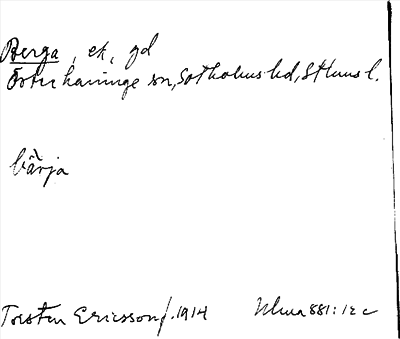 Berga, ek, gd
Österhaninge sn, Sotholms hd, Sthlms l.
bä̀rja
Torsten Ericsson f. 1914 Ulma 881:12 c